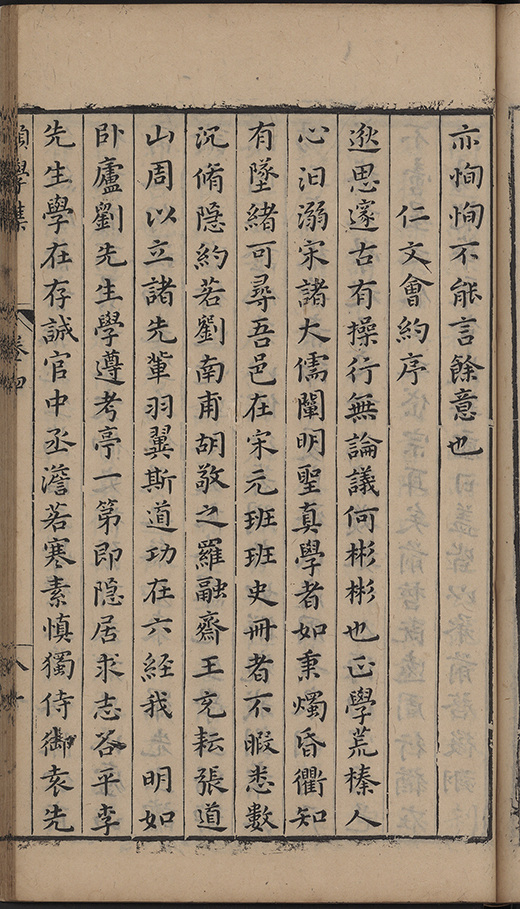 亦恂恂不能言餘意也
仁文會約序
逖思邃古有操行無論議何彬彬也正學荒榛人
心汨溺宋諸大儒闡明聖真學者如秉燭昏衢知
有墜緒可尋吾邑在宋元班班史冊者不暇悉數
沉脩隱約若劉南甫胡敬之羅融齋王充耘張道
山周以立諸先軰羽翼斯道功在六經我　明如
卧廬劉先生學遵考亭一第即隱居求志谷平李
先生學在存誠官中丞澹若寒素慎獨侍御袁先
願學集　卷四